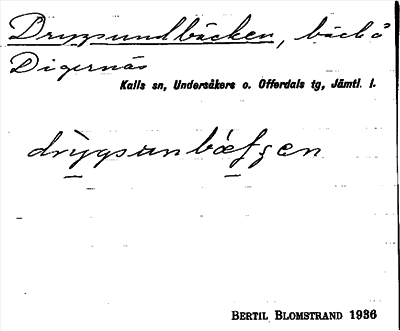 Drygsundbäcken, bäck å
Digernäs
Kalls sn, Undersåkers o. Offerdals tg, Jämtl. l.
BERTIL BLOMSTRAND 1936